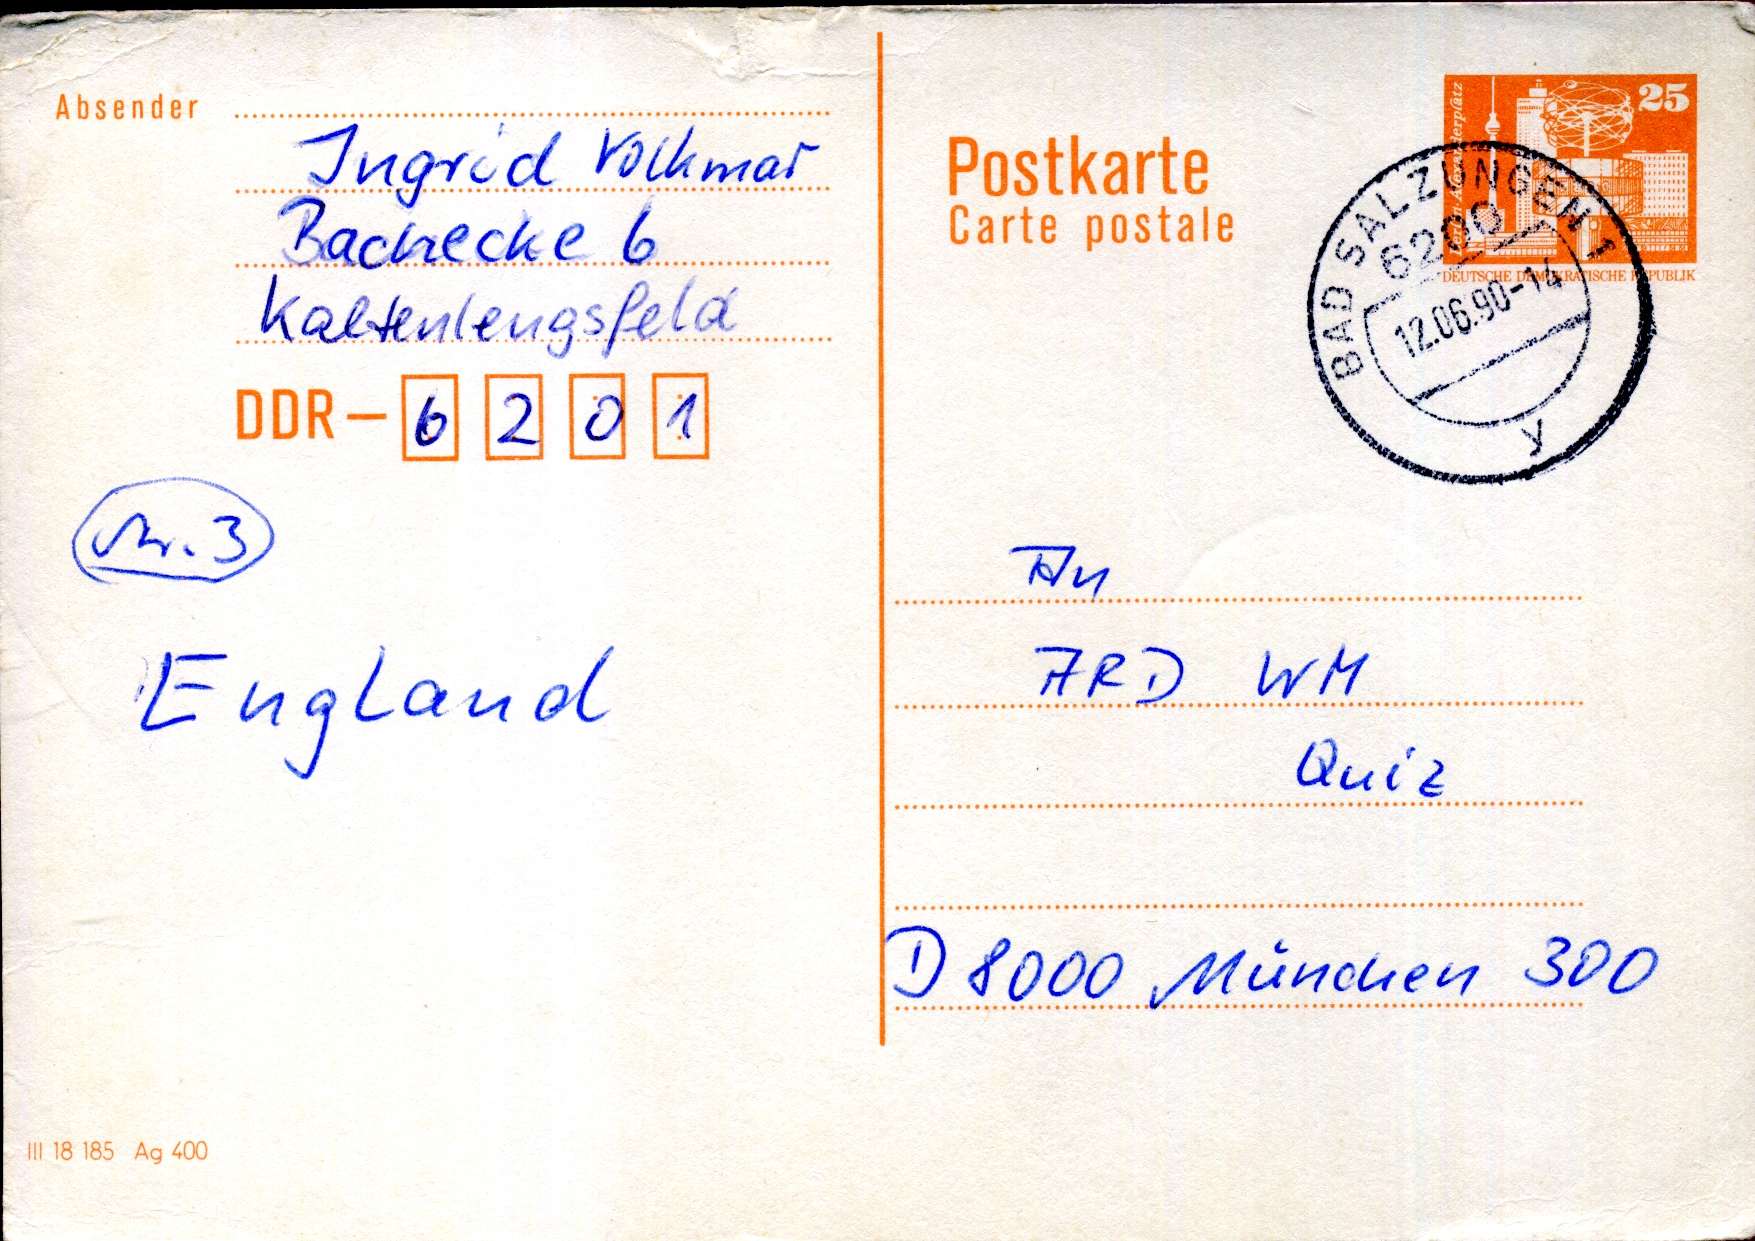 Absender
Ingrid Volkmar
Bachecke 6
Kaltenlengsfeld
DDR — 6 2 0 1
Nr. 3
England
III 18 185 Ag 400
Postkarte
Carte postale
25
DEUTSCHE DEMOKRATISCHE REPUBLIK
BAD SALZUNGEN 1
6200
12.06.90-14
y
An
ARD WM
Quiz
D 8000 München 300